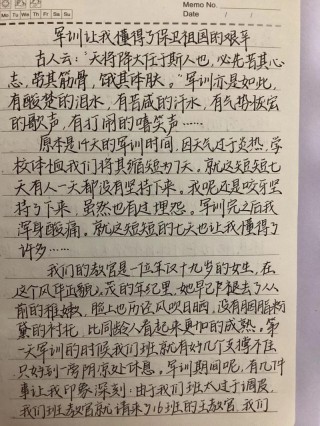 Memo No.
Mo Tu We Th Fr Sa Su
Date / /
军训让我懂得了保卫祖国的艰辛
古人云："天将降大任于斯人也，必先苦其心
志，劳其筋骨，饿其体肤。"军训亦是如此，
有酸楚的泪水，有苦咸的汗水，有气势恢宏
的歌声，有打闹的嘻笑声……
原本是十天的军训时间，因天气过于炎热，学
校体恤我们将其缩短为7天。就这短短七
天有人一天都没有坚持下来。我呢还是咬牙坚
持了下来，虽然也有过埋怨。军训完之后我
浑身酸痛。就这短短的七天也让我懂得了
许多……
我们的教官是一位年仅十九岁的女生，在
这个风华正貌。茂的年纪里，她早已褪去了从
前的稚嫩，脸上也历经风吹日晒，没有胭脂粉
黛的衬托，比同龄人看起来更加的成熟。第
一天军训的时候我们班就有好几个支撑不住
只好到一旁阴凉处休息。军训期间呢，有几件
事让我印象深刻：由于我们班太过于调皮，
我们班教官就请来了16班的王教官，我们